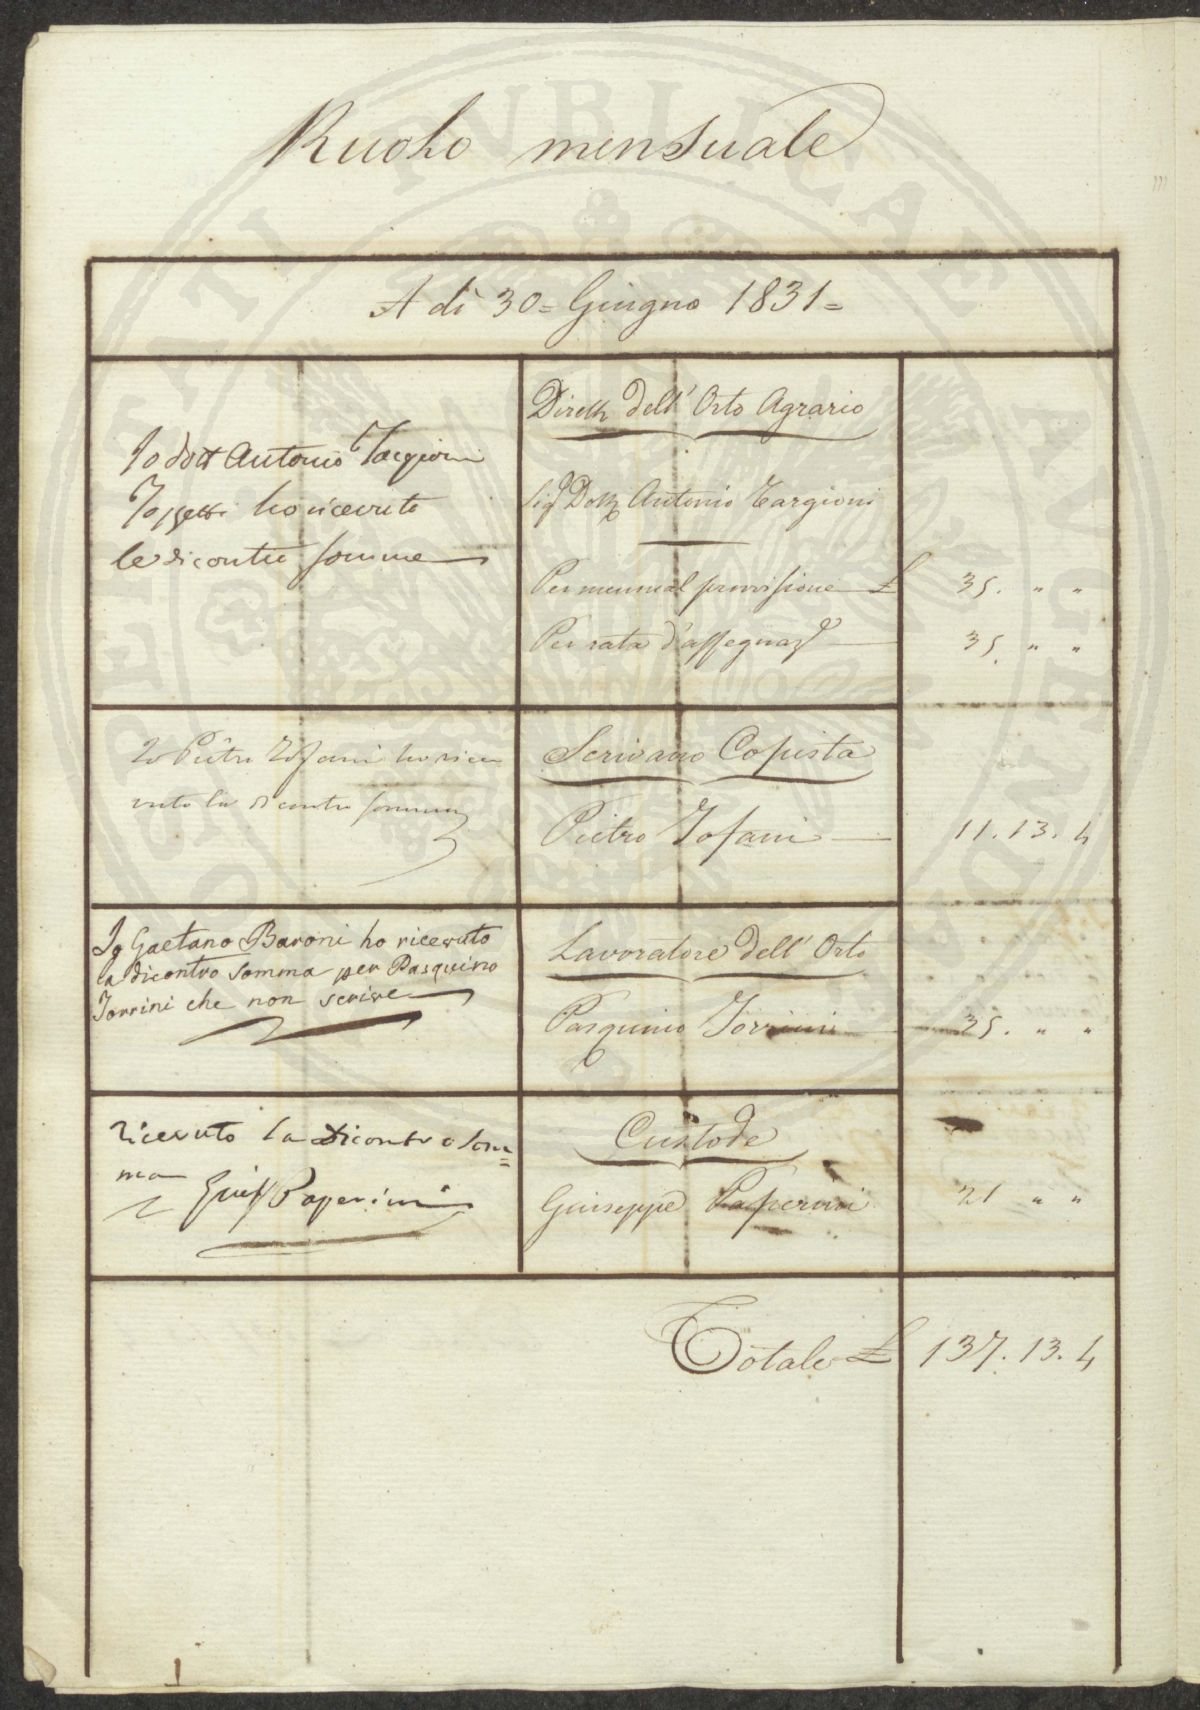 Ruolo mensuale
A di 30= Giugno 1831=
Io dott Antonio Targioni
Tozzetti ho ricevuto
le di contro somme
Dirett.e dell' Orto Agrario
Sig.e Dott.e Antonio Targioni
Per mensual provvisione £ 35. " "
Per rata d'assegnaz.e 35. " "
Io Pietro Tofani ho rice
vuto la di contro somma
Scrivano Copista
Pietro Tofani 11. 13. 4
Io Gaetano Baroni ho ricevuto
la dicontro somma per Pasquino
Torrini che non scrive
Lavoratore dell' Orto
Pasquino Torrini 35. " "
ricevuto la Dicontro som=
ma
Gius. Paperini
Custode
Giuseppe Paperini 21 " "
Totale £ 137. 13. 4